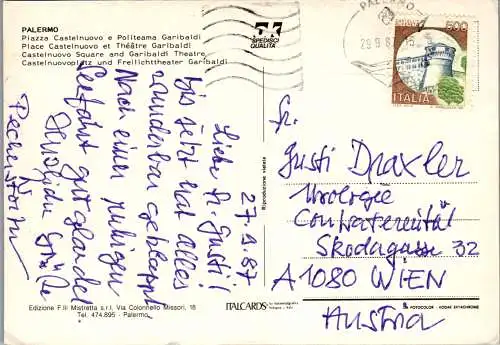 PALERMO
Piazza Castelnuovo e Politeama Garibaldi
Place Castelnuovo et Théâtre Garibaldi
Castelnuovo Square and Garibaldi Theatre
Castelnuovoplatz und Freilichttheater Garibaldi
SPEDISCI
QUALITÀ
PALERMO
29.9.8
500
ITALIA
27.9.87
Liebe Fr. Gusti!
Bis jetzt hat alles
wunderbar geklappt
Nach einer ruhigen
Seefahrt gut gelandet
Herzliche Grüße
Fr.
Gusti Draxler
Urologie
Confraternität
Skodagasse 32
A1080 WIEN
Austria
Riproduzione vietata
Edizione F.lli Mistretta s.r.l. Via Colonnello Missori, 18
Tel. 474.895 - Palermo
ITALCARDS
FOTOCOLOR - KODAK EKTACHROME